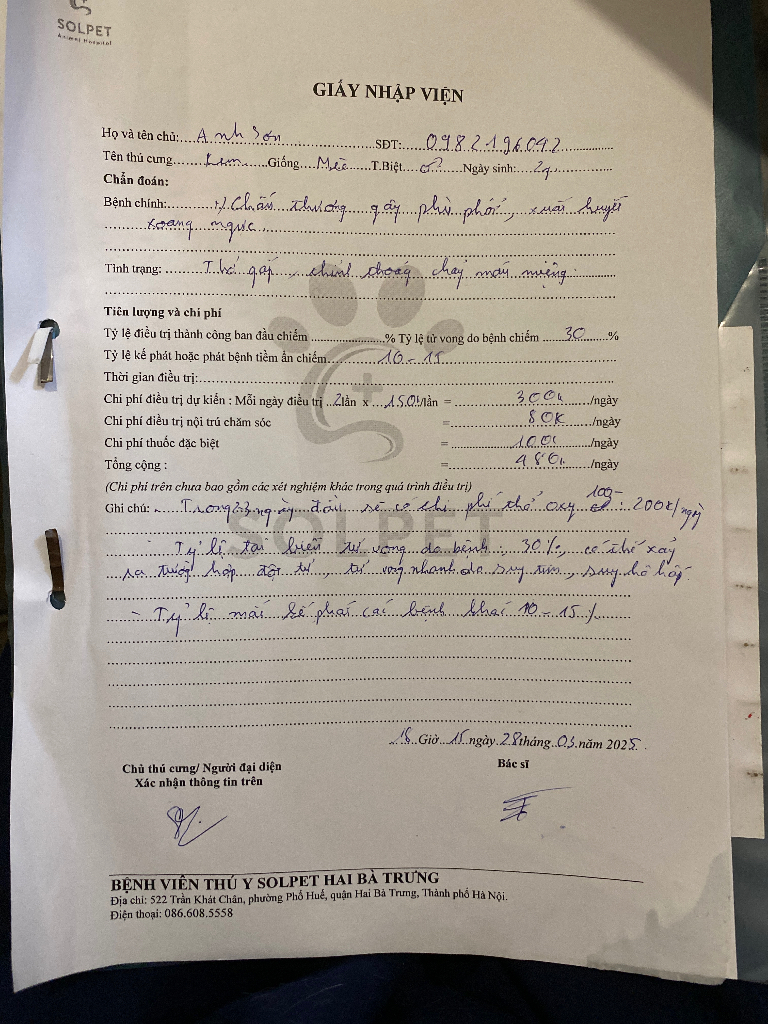 SOLPET
Animal Hospital
GIẤY NHẬP VIỆN
Họ và tên chủ: Anh Sơn SĐT: 0982196092
Tên thú cưng Kem Giống Mèo T.Biệt ♂ Ngày sinh: 2y
Chẩn đoán:
Bệnh chính: Chấn thương gây phù phổi, xuất huyết
xoang ngực
Tình trạng: Thở gấp, choáng chảy máu miệng
Tiên lượng và chi phí
Tỷ lệ điều trị thành công ban đầu chiếm % Tỷ lệ tử vong do bệnh chiếm 30 %
Tỷ lệ kế phát hoặc phát bệnh tiềm ẩn chiếm 10-15
Thời gian điều trị:
Chi phí điều trị dự kiến : Mỗi ngày điều trị 2 lần x 150k/lần = 300k /ngày
Chi phí điều trị nội trú chăm sóc = 80K /ngày
Chi phí thuốc đặc biệt = 100k /ngày
Tổng cộng : = 480k /ngày
(Chi phí trên chưa bao gồm các xét nghiệm khác trong quá trình điều trị)
Ghi chú: Trong 2-3 ngày đầu sẽ có chi phí thở oxy 100- 200k/ngày
Tỷ lệ tai biến tử vong do bệnh: 30%, có thể xảy
ra trường hợp đột tử, tử vong nhanh do suy tim, suy hô hấp.
- Tỷ lệ mắc kế phát các bệnh khác 10-15%
16 Giờ 15 ngày 28 tháng 03 năm 2025.
Chủ thú cưng/ Người đại diện Bác sĩ
Xác nhận thông tin trên
SOLPET
BỆNH VIỆN THÚ Y SOLPET HAI BÀ TRƯNG
Địa chỉ: 522 Trần Khát Chân, phường Phố Huế, quận Hai Bà Trưng, Thành phố Hà Nội.
Điện thoại: 086.608.5558